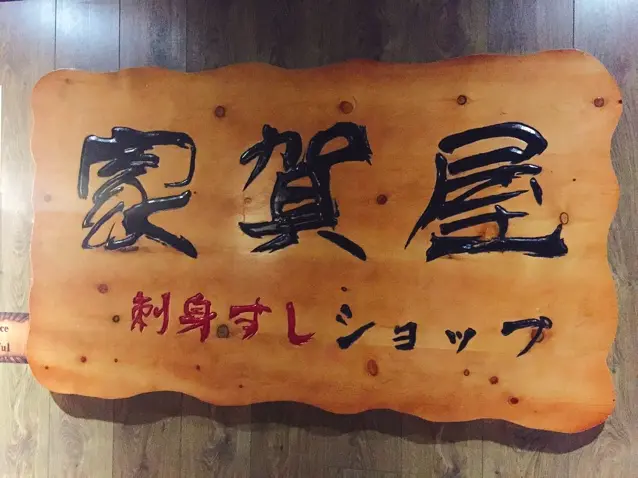 家賀屋
刺身すしショップ
ce
ful